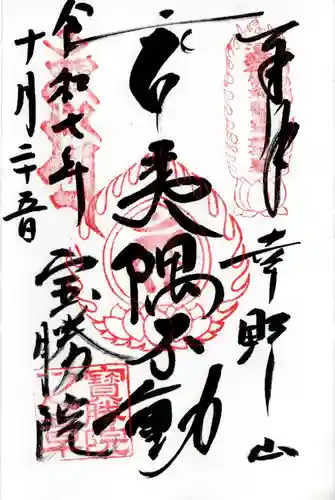 奉拝
幸野山
夷隅不動
令和七年
十月二十五日
宝勝院
寶勝院